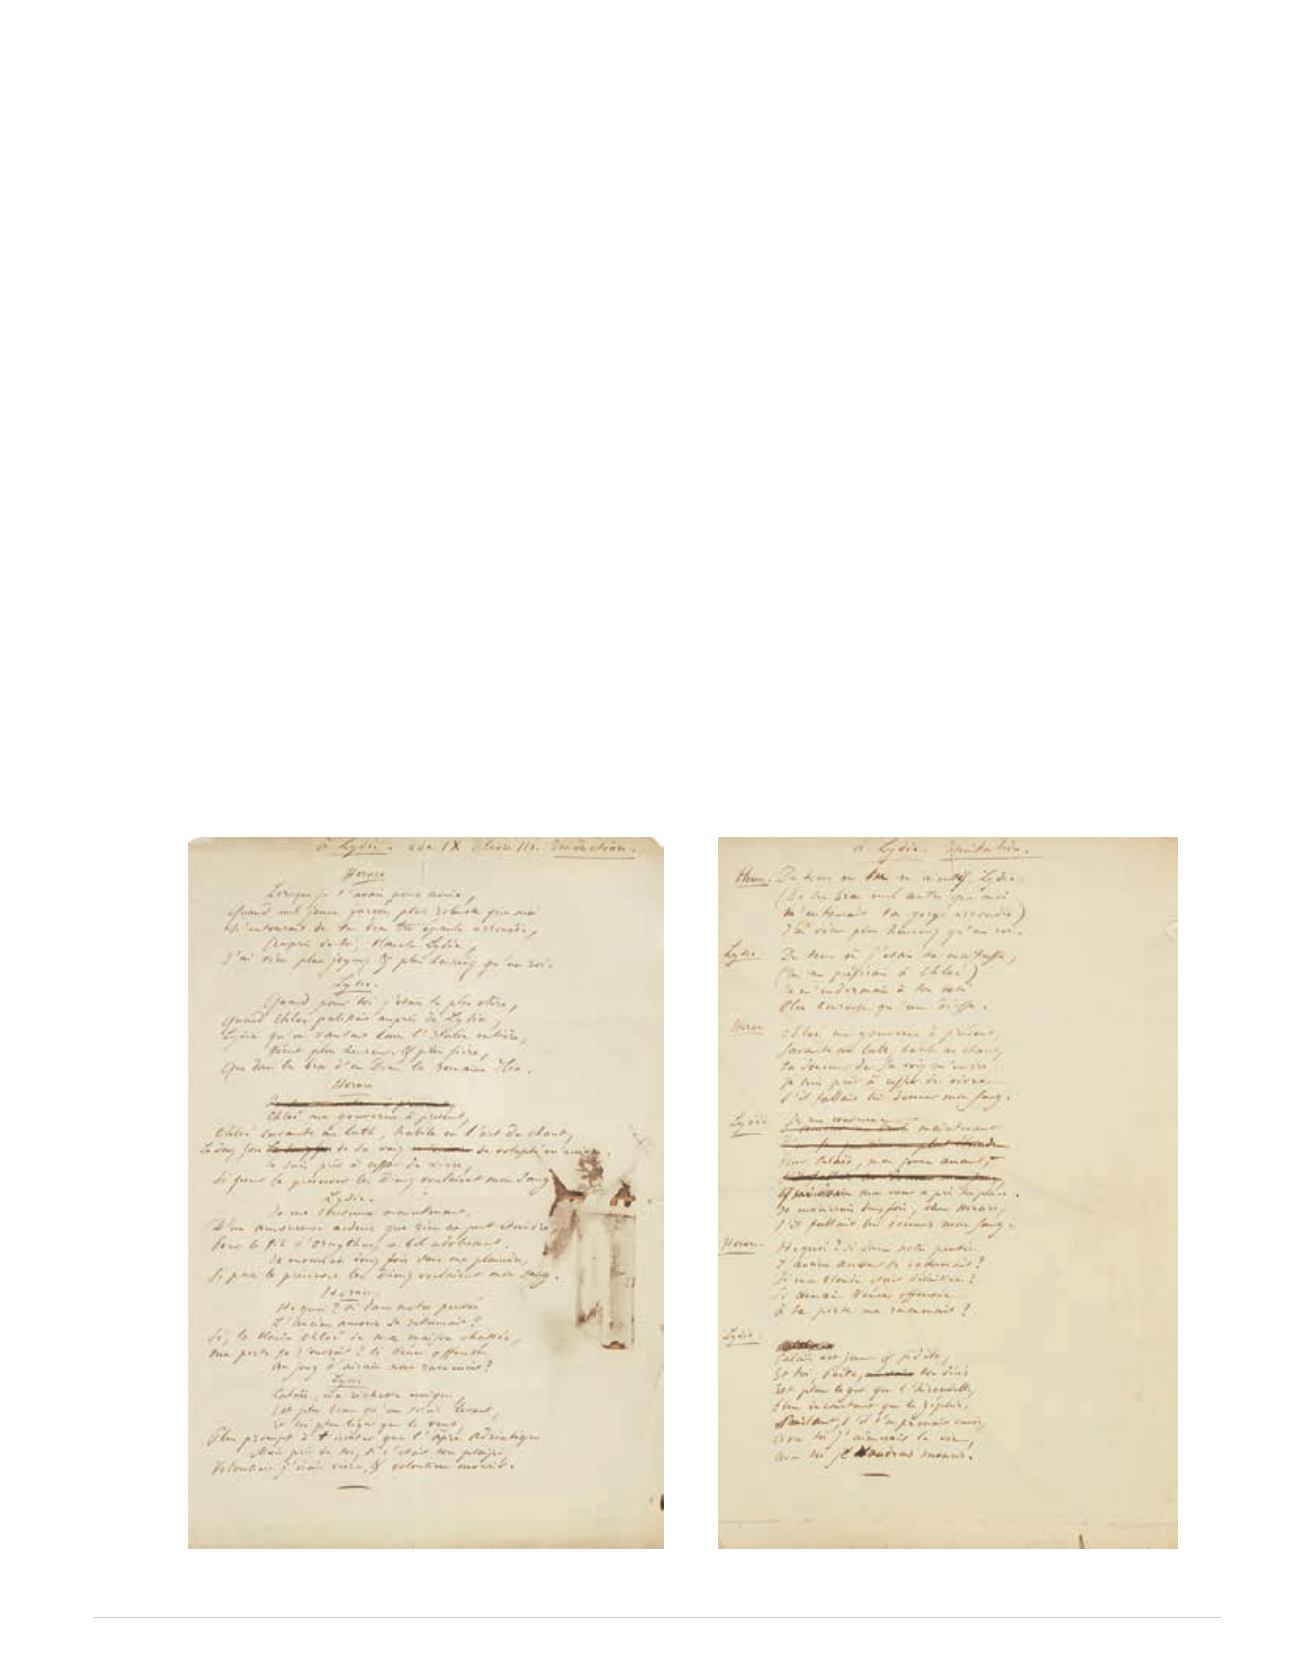 à Lydie. ode IX livre III. traduction.
Horace
Lorsque je t'avais pour amie,
Quand nul jeune garçon plus robuste que moi
N'entourait de ses bras épaule arrondie,
Auprès de toi, blanche Lydie,
J'ai vécu plus joyeux & plus heureux qu'un roi.
Lydie.
Quand pour toi j'étais la plus chère,
Quand Chloé pâlissait auprès de Lydie,
Lydie qu'on vantait dans l'Italie entière,
Vécut plus heureuse & plus fière,
Que dans les bras d'un Dieu la romaine Ilie.
Horace
Chloé me gouverne à présent,
Chloé savante au luth, habile en l'art du chant,
de sa voix de volupté m'enivre.
Je suis prêt à cesser de vivre,
S'il faut la préserver les Dieux voulaient mon sang
Lydie.
Je me consume maintenant,
D'une amoureuse ardeur que rien ne peut éteindre,
Pour le fils d'Ornythus, ce bel adolescent.
Je mourrais deux fois sans me plaindre,
Si pour le préserver les Dieux voulaient mon sang.
Horace.
Hé quoi? si dans notre pensée
L'ancien amour se ranimait?
Si, la blonde Chloé de ma maison chassée,
Ma porte se rouvrait? si Vénus offensée
Au joug d'airain nous ramenait?
Lydie
Calaïs, ma richesse unique,
Est plus beau qu'un soleil levant,
Et toi plus léger que le vent,
Plus prompt à t'irriter que l'âpre Adriatique
Mais près de toi, si c'était ton plaisir,
Volontiers j'irais vivre, & volontiers mourir.
à Lydie. Imitation.
Horace. Du temps où tu m'aimais, Lydie
(De ses bras nul autre que moi
N'entourait ta gorge arrondie)
J'ai vécu plus heureux qu'un roi.
Lydie. Du temps où j'étais ta maîtresse,
(Tu me préférais à Chloé)
Je m'endormais à ton côté
Plus heureuse qu'une déesse.
Horace Chloé me gouverne à présent,
Savante au luth, habile au chant,
La douceur de sa voix m'enivre
Je suis prêt à cesser de vivre
S'il fallait lui donner mon sang.
Lydie Je me consume maintenant
Pour Calaïs, mon jeune amant,
Qui dans mon cœur a pris ta place.
Je mourrais deux fois, cher Horace,
S'il fallait lui donner mon sang.
Horace. Hé quoi? si dans notre pensée
L'ancien amour se ranimait?
Si ma blonde était délaissée?
Si demain Vénus offensée
à ta porte me ramenait?
Lydie.
Calaïs est jeune & fidèle,
Et toi, Poète, ton désir
Est plus léger que l'hirondelle,
Plus inconstant que le zéphir.
Pourtant, s'il t'en prenait envie,
Avec toi j'aimerais la vie,
Avec toi je voudrais mourir.